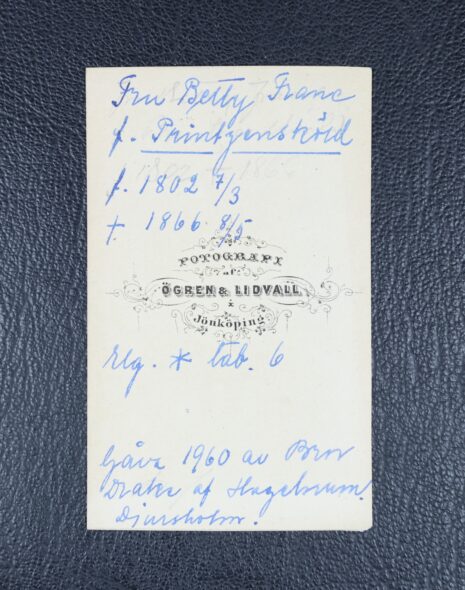 Fru Betty Franc
f. Printzensköld
f. 1802 7/3
† 1866 8/5
FOTOGRAFI
af
ÖGREN & LIDVALL
Jönköping
reg. * tab. 6
Gåva 1960 av
Drake af Hagelsrum,
Djursholm.